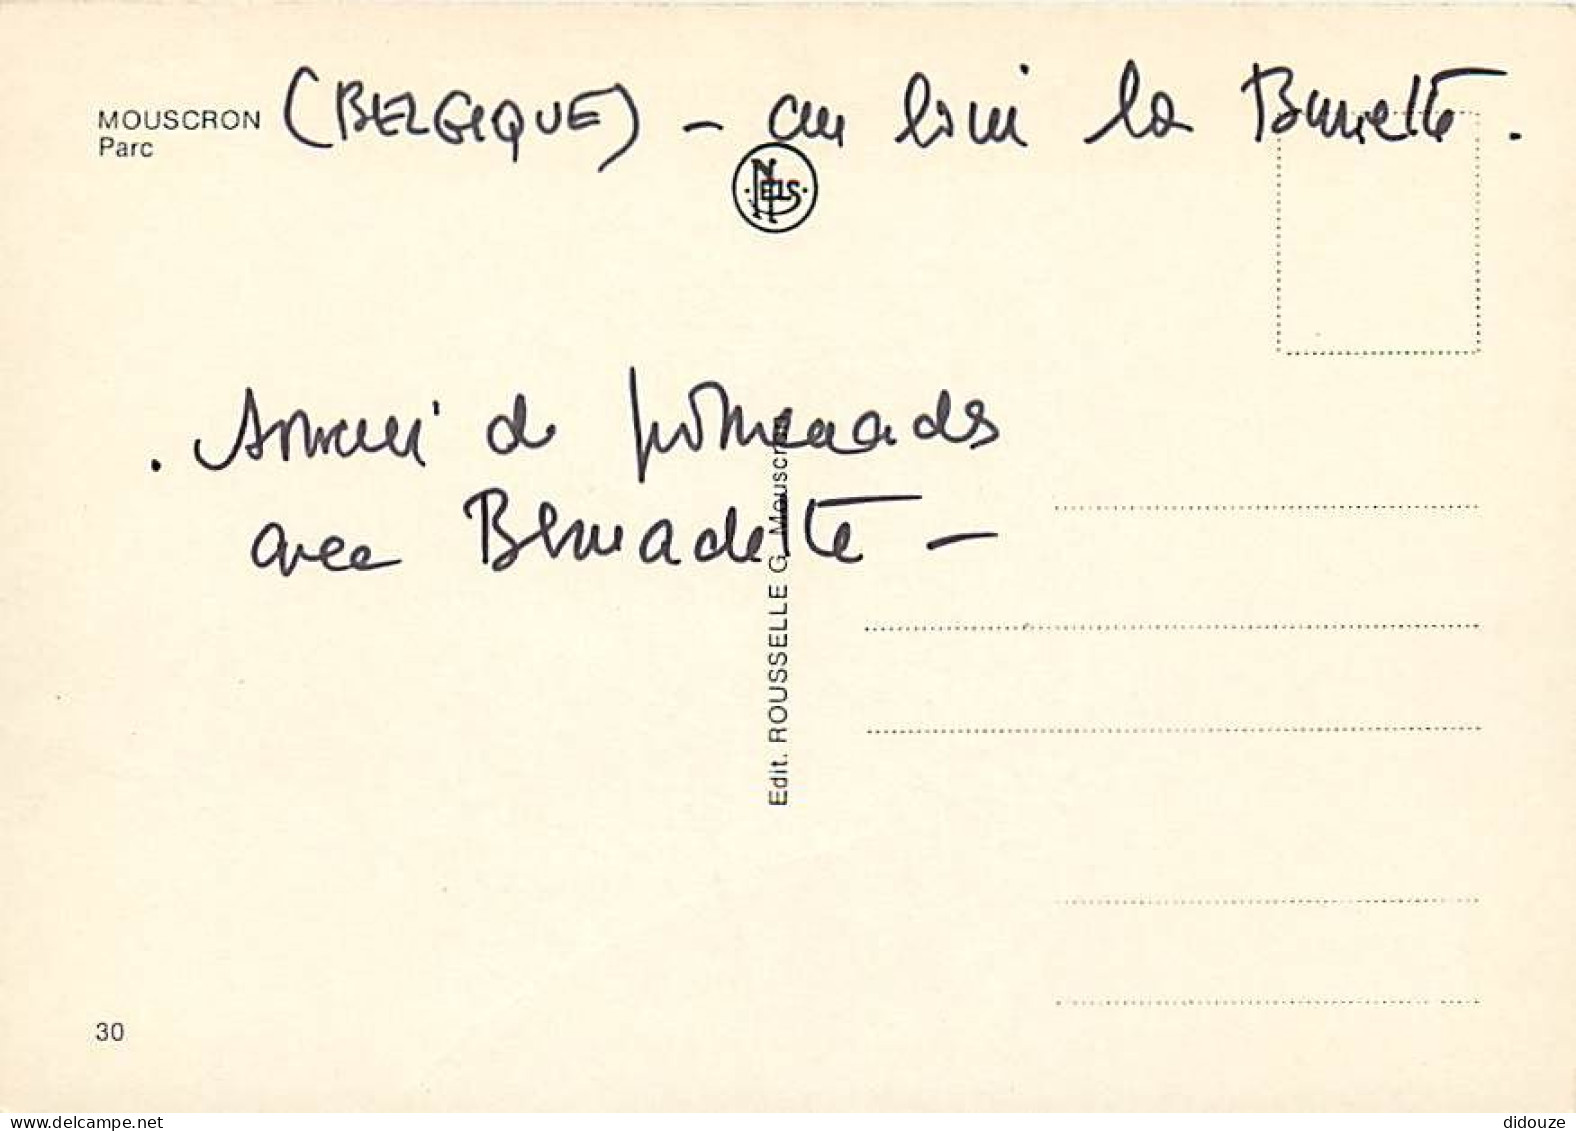 MOUSCRON (BELGIQUE) - au loin la Buvette.
Parc
NELS
. Souvenir de promenades
avec Bernadette -
Edit. ROUSSELLE G. Mouscron
30
delcampe.net
didouze